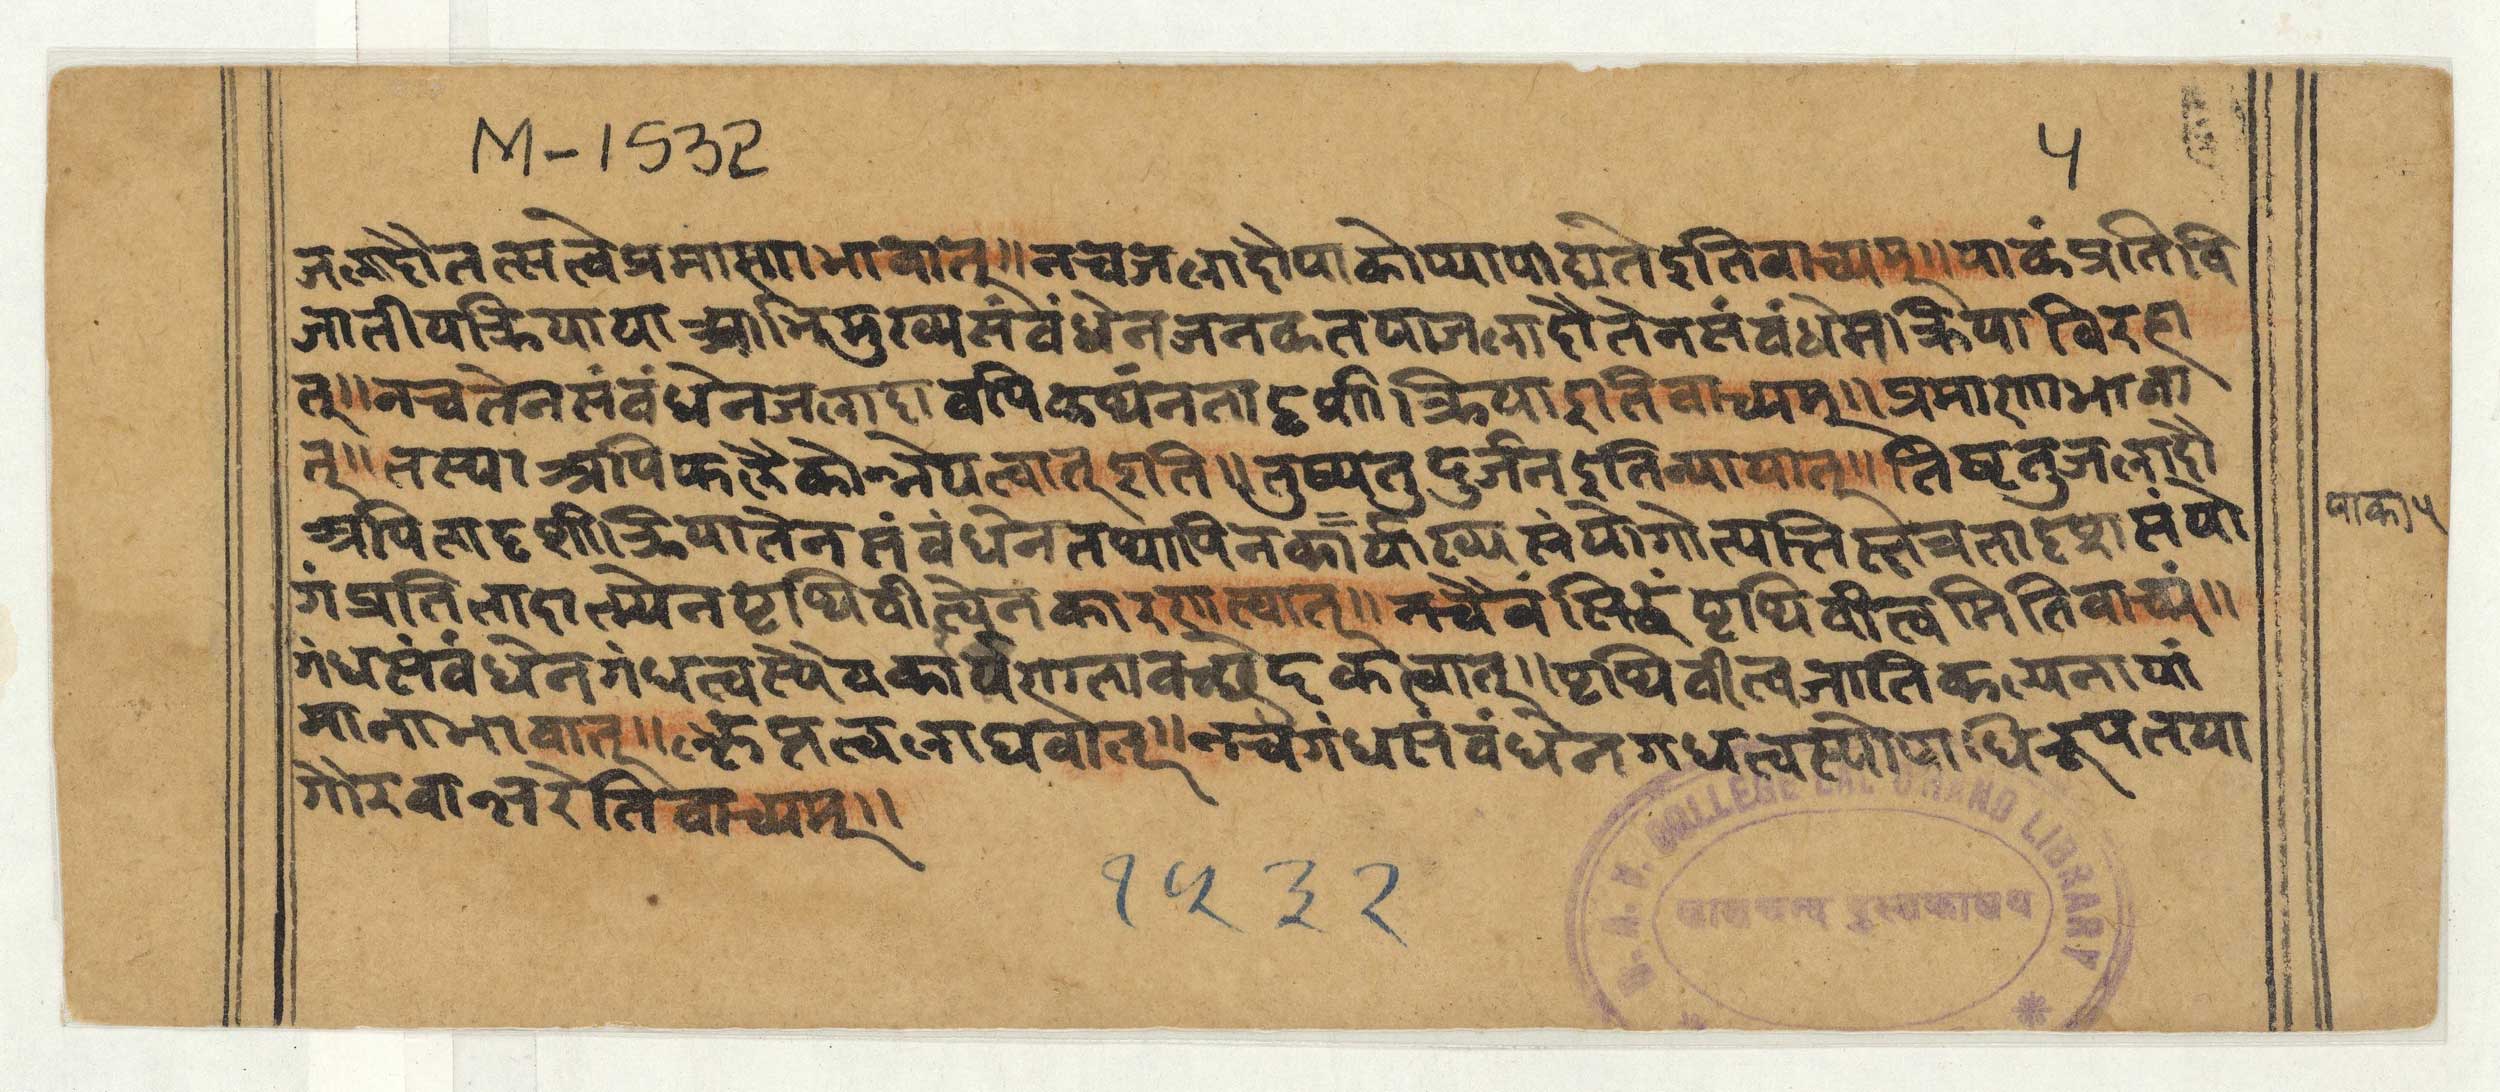 M-1532
५
जलादौतत्सत्वेप्रमाणाभावात्॥नचजलादौपाकोप्यापाद्यतेइतिवाच्यम्॥पाकंप्रतिवि
जातीयक्रियायाआभिमुख्यसंबंधेनजनकतयाजलादौतेनसंबंधेनक्रियाविरहा
त्॥नचतेनसंबंधेनजलादावपिकथंनतादृशीक्रियाइतिवाच्यम्॥प्रमाणाभावा
त्॥तस्याअपिफलैकोन्नेयत्वात्इति॥तुष्यतुदुर्जनइतिन्यायात्॥तिष्ठतुजलादौ
अपितादृशीक्रियातेनसंबंधेनतथापिनकार्याख्यसंयोगोत्पत्तिस्तत्रचतादृशसंयो
पाका५
गंप्रतितादात्म्येनपृथिवीत्वेनकारणत्वात्॥नचैवंसिद्धंपृथिवीत्वमितिवाच्यं॥
गंधसंबंधेनगंधत्वस्यैवकार्यणतावच्छेदकत्वात्॥पृथिवीत्वजातिकल्पनायां
मानाभावात्॥क्लृप्तत्वलाघवात्॥नचगंधसंबंधेनगधत्वस्योपाधिरूपतया
गौरवान्तरेतिवाच्यम्॥
१५३२
D. A. V. COLLEGE LAL CHAND LIBRARY
लालचन्द पुस्तकालय